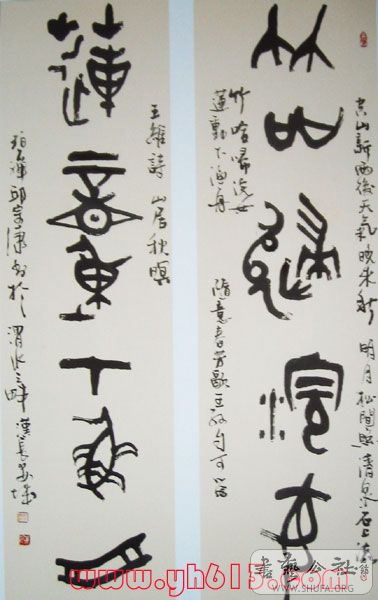 空山新雨後天氣晚來秋 明月松間照清泉石上流
竹喧歸浣女
竹喧歸浣女
蓮動下漁舟
隨意春芳歇王孫自可留
王維詩 山居秋暝
蓮動下漁舟
書於渭水之畔
www.yh615.com
書藝公社
WWW.SHUFA.ORG